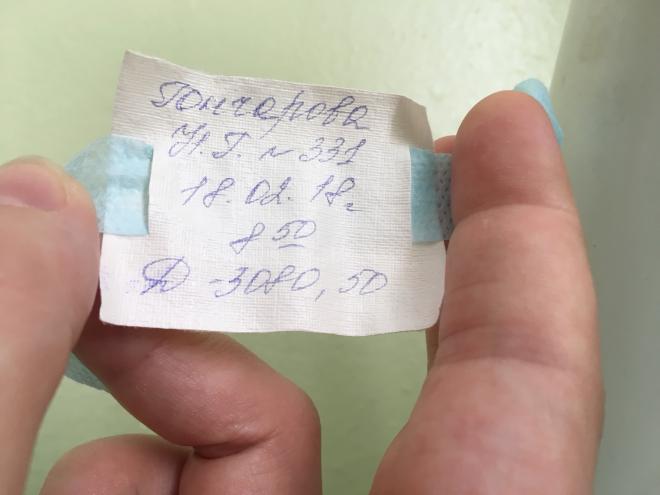 Гончарова
Н.Г. № 331
18.02.18г
8 50
Д - 3080, 50